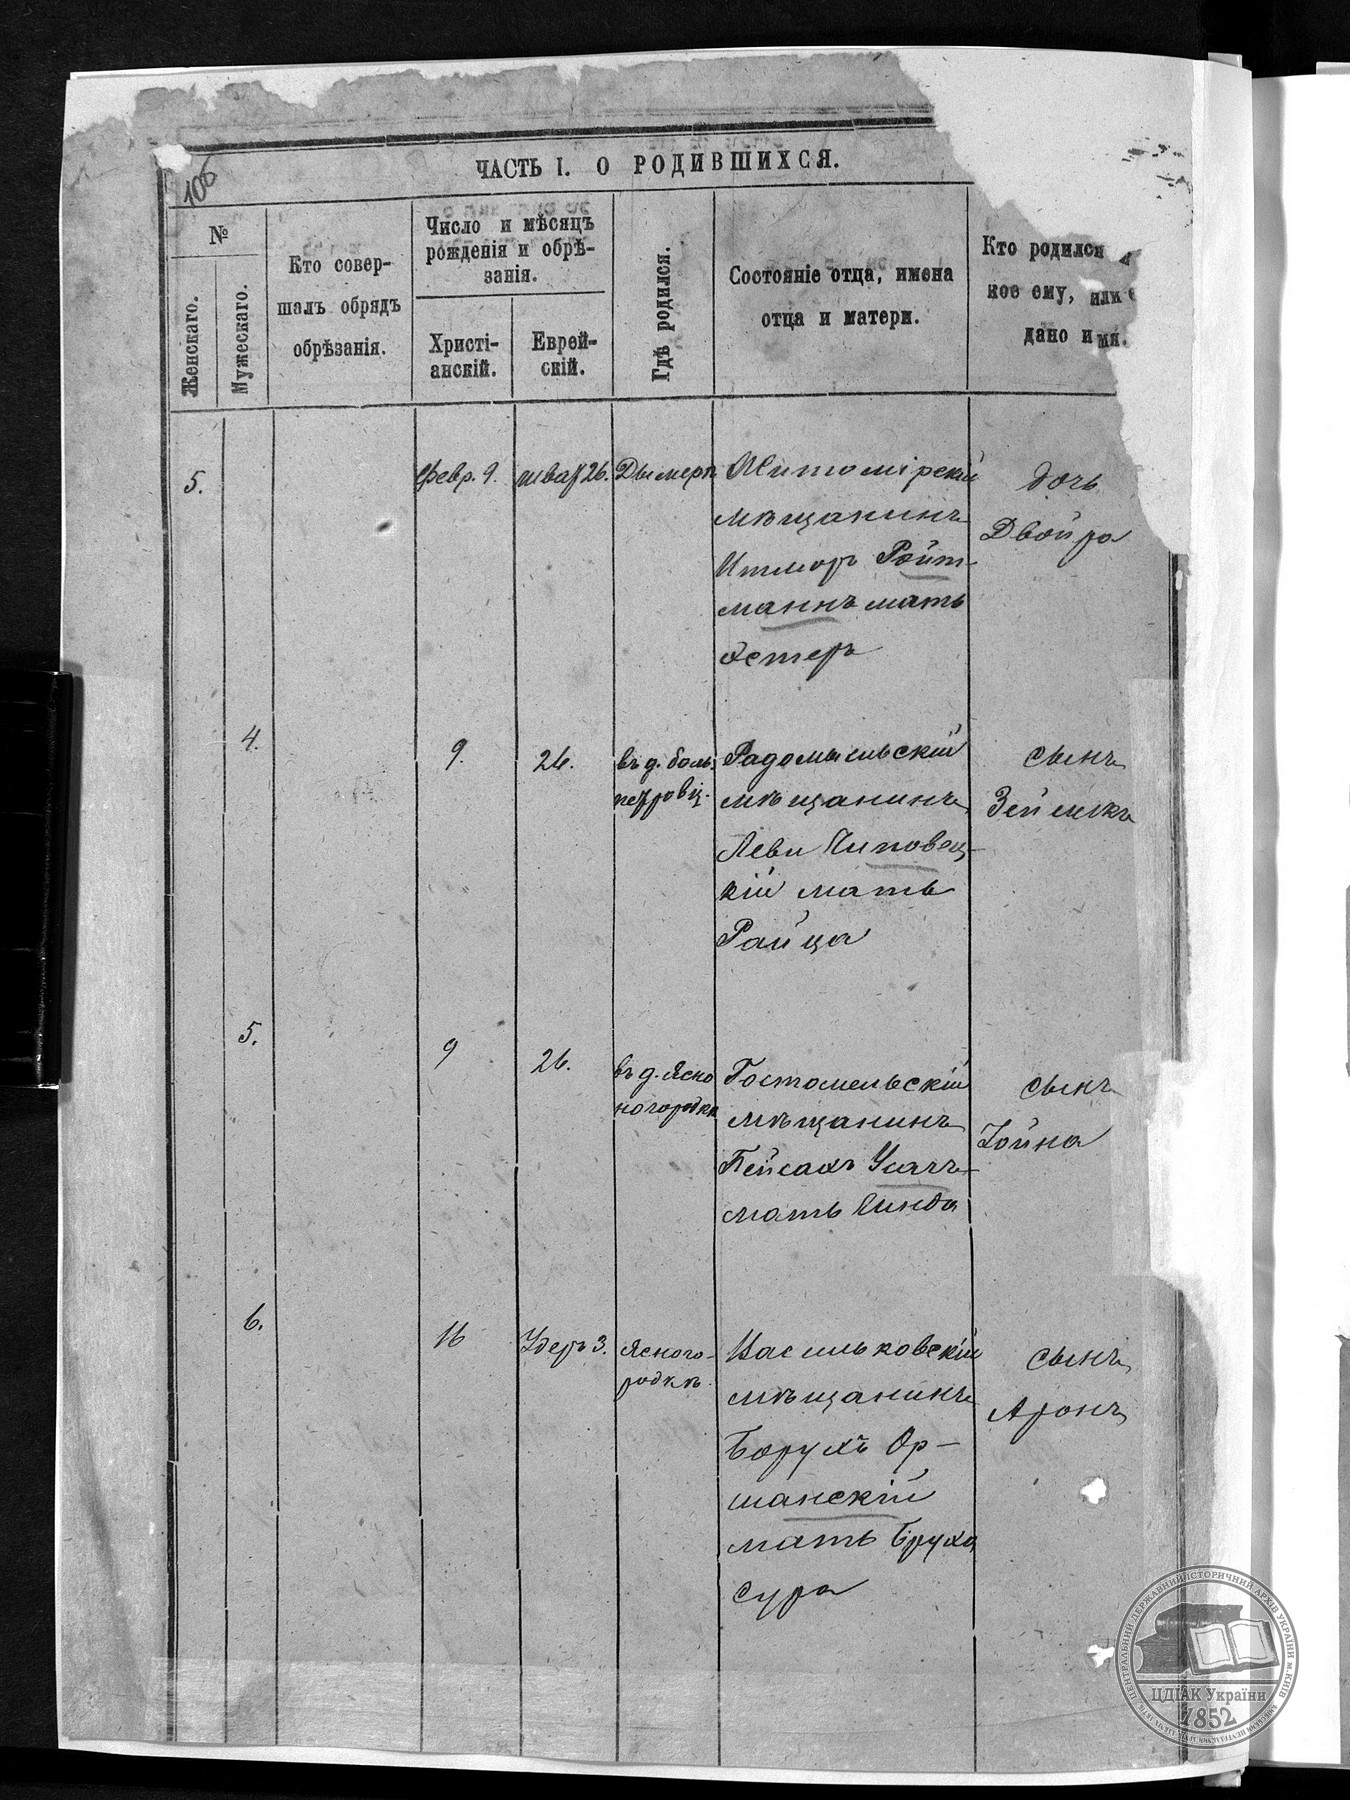 106
ЧАСТЬ I. О РОДИВШИХСЯ.
№
Женскаго.
Мужескаго.
Кто совер-
шалъ обрядъ
обрѣзанія.
Число и мѣсяцъ
рожденія и обрѣ-
занія.
Христі-
анскій.
Еврей-
скій.
Гдѣ родился.
Состояніе отца, имена
отца и матери.
Кто родился
кое ему, или
дано имя.
5.
февр. 9.
шват 26.
Дымерѣ
Житомірскій
мѣщанинъ
Итморъ Ройт-
манъ мать
Эстеръ
дочь
Двойра
4.
9.
26.
въ д. боль.
петровц.
Радомысльскій
мѣщанинъ
Леви Липовец-
кій мать
Райца
сынъ
Зейликъ
5.
9
26.
въ д. Ясно
ногородка
Гостомельскій
мѣщанинъ
Пейсахъ Усачъ
мать Гинда
сынъ
Хойна
6.
16
Удеръ 3.
Ясного-
родкѣ
Васильковскій
мѣщанинъ
Борухъ Ор-
шанскій
мать Бруха
сура
сынъ
Аронъ
ЦЕНТРАЛЬНИЙ ДЕРЖАВНИЙ ІСТОРИЧНИЙ АРХІВ УКРАЇНИ м.КИЇВ
ЦДІАК України
1852